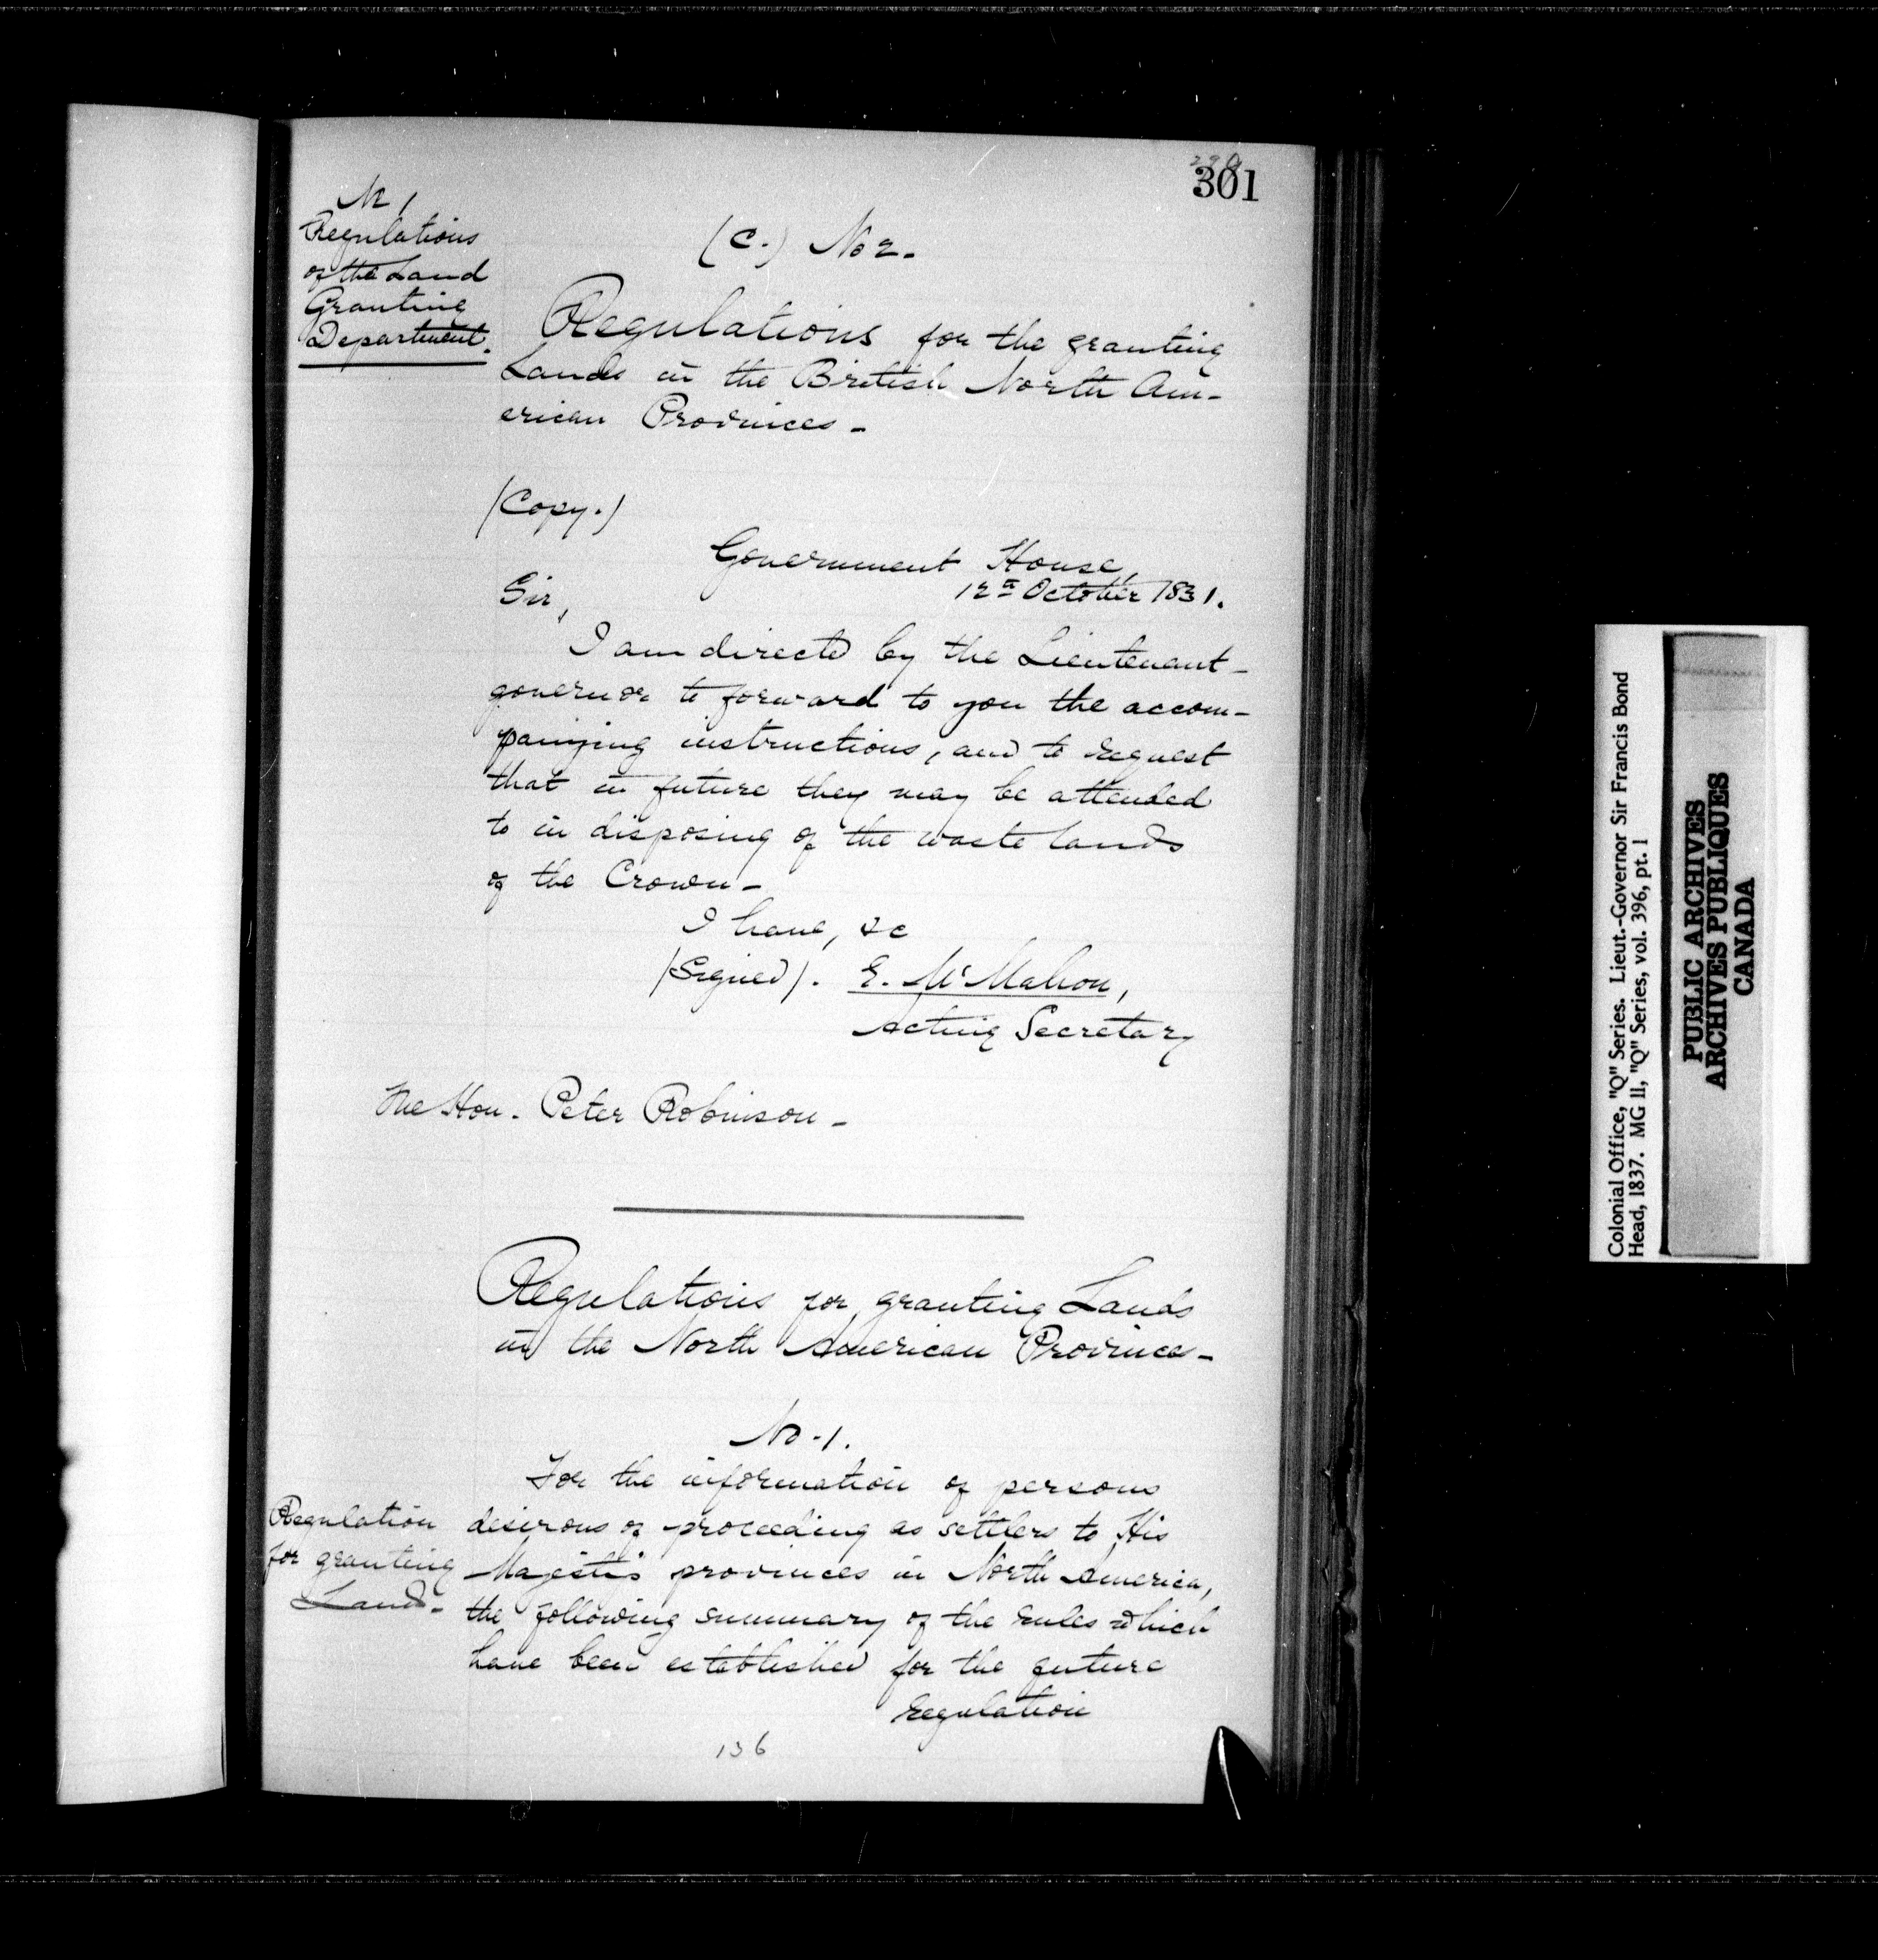 301
No 1
Regulations
of the Land
Granting
Department.
(C.) No 2.
Regulations for the granting
Lands in the British North Am-
erican Provinces -
(Copy.)
Government House,
12th October 1831.
Sir,
I am directed by the Lieutenant-
governor to forward to you the accom-
panying instructions, and to request
that in future they may be attended
to in disposing of the waste lands
of the Crown -
I have, &c
(Signed). E. McMahon,
Acting Secretary
The Hon. Peter Robinson -
Regulations for granting Lands
in the North American Provinces -
No. 1.
For the information of persons
Regulation
for granting
Land -
desirous of proceeding as settlers to His
Majesty's provinces in North America,
the following summary of the rules which
have been established for the future
regulation
136
Colonial Office, "Q" Series. Lieut.-Governor Sir Francis Bond
Head, 1837. MG 11, "Q" Series, vol. 396, pt. 1
PUBLIC ARCHIVES
ARCHIVES PUBLIQUES
CANADA